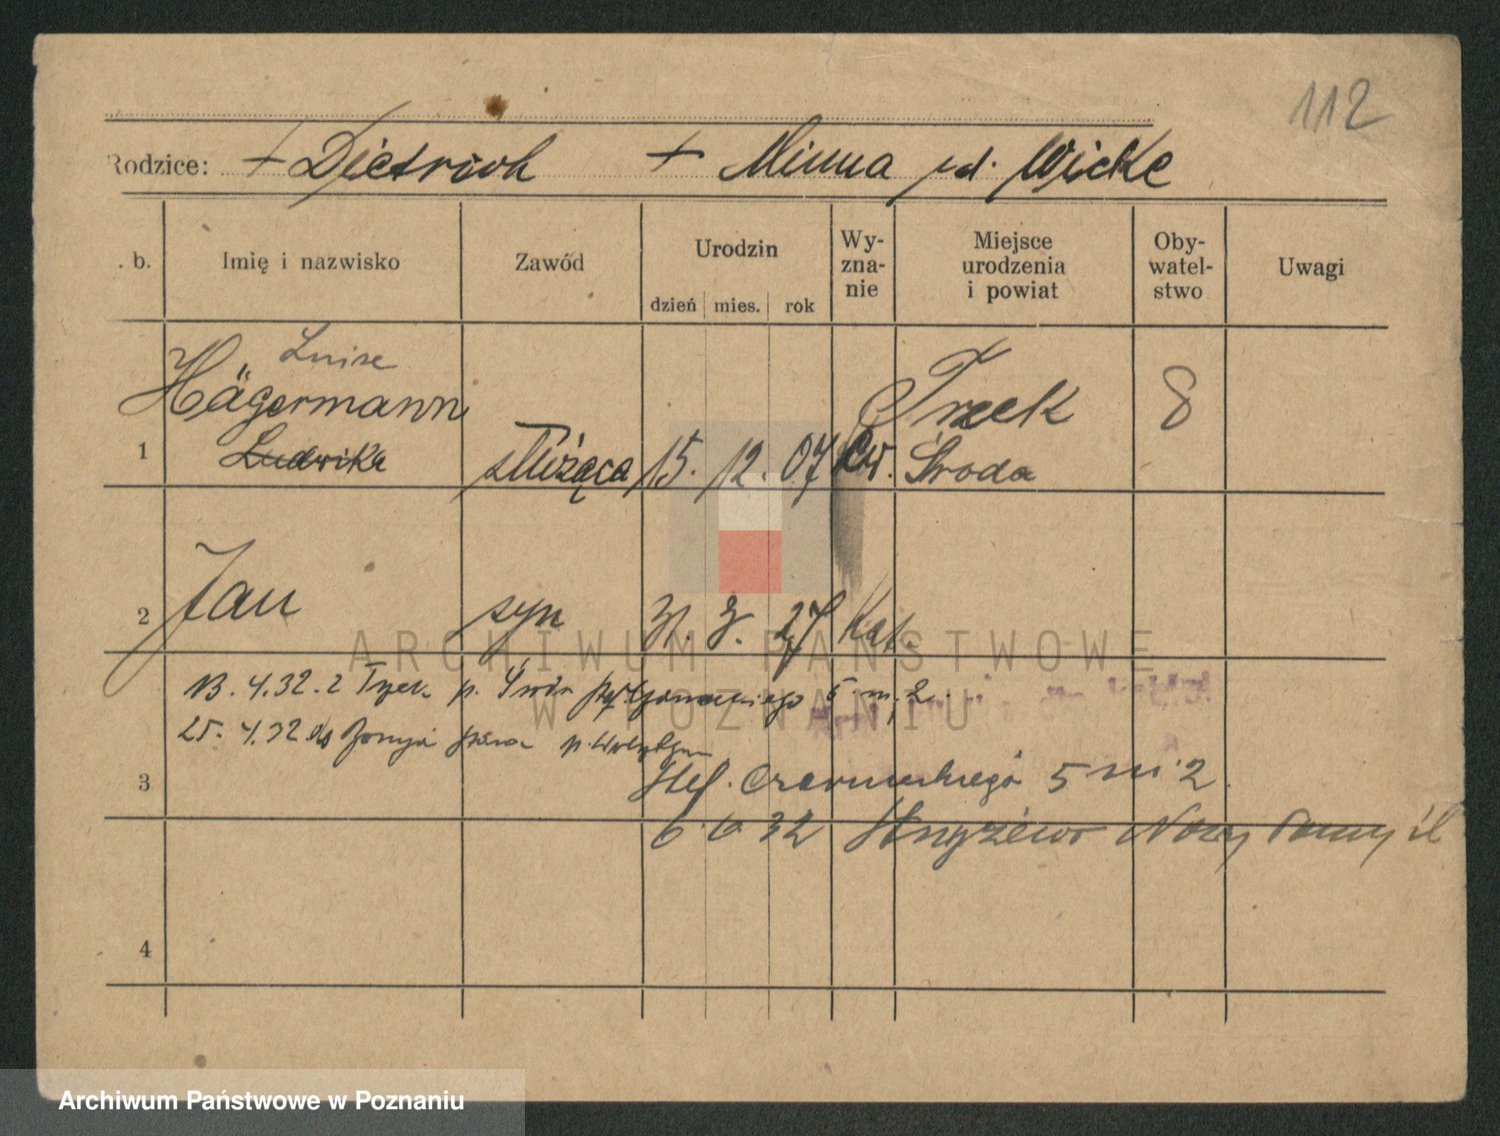 112
Rodzice: + Dietrich + Minna zd. Wicke
. b. Imię i nazwisko Zawód Urodzin dzień mies. rok Wy-zna-nie Miejsce urodzenia i powiat Oby-watel-stwo Uwagi
Luise
Hägermann Trzek 8
1 Ludwika służąca 15. 12. 07 Ew. Środa
2 Jan syn 31. 3. 27 Kat.
13. 4. 32 z p. 5 m. 2
25. 4. 32 do
3 Stef. Czarneckiego 5 m. 2
6. 6 32 Nowy Tomyśl
4
ARCHIWUM PAŃSTWOWE
W POZNANIU
Archiwum Państwowe w Poznaniu